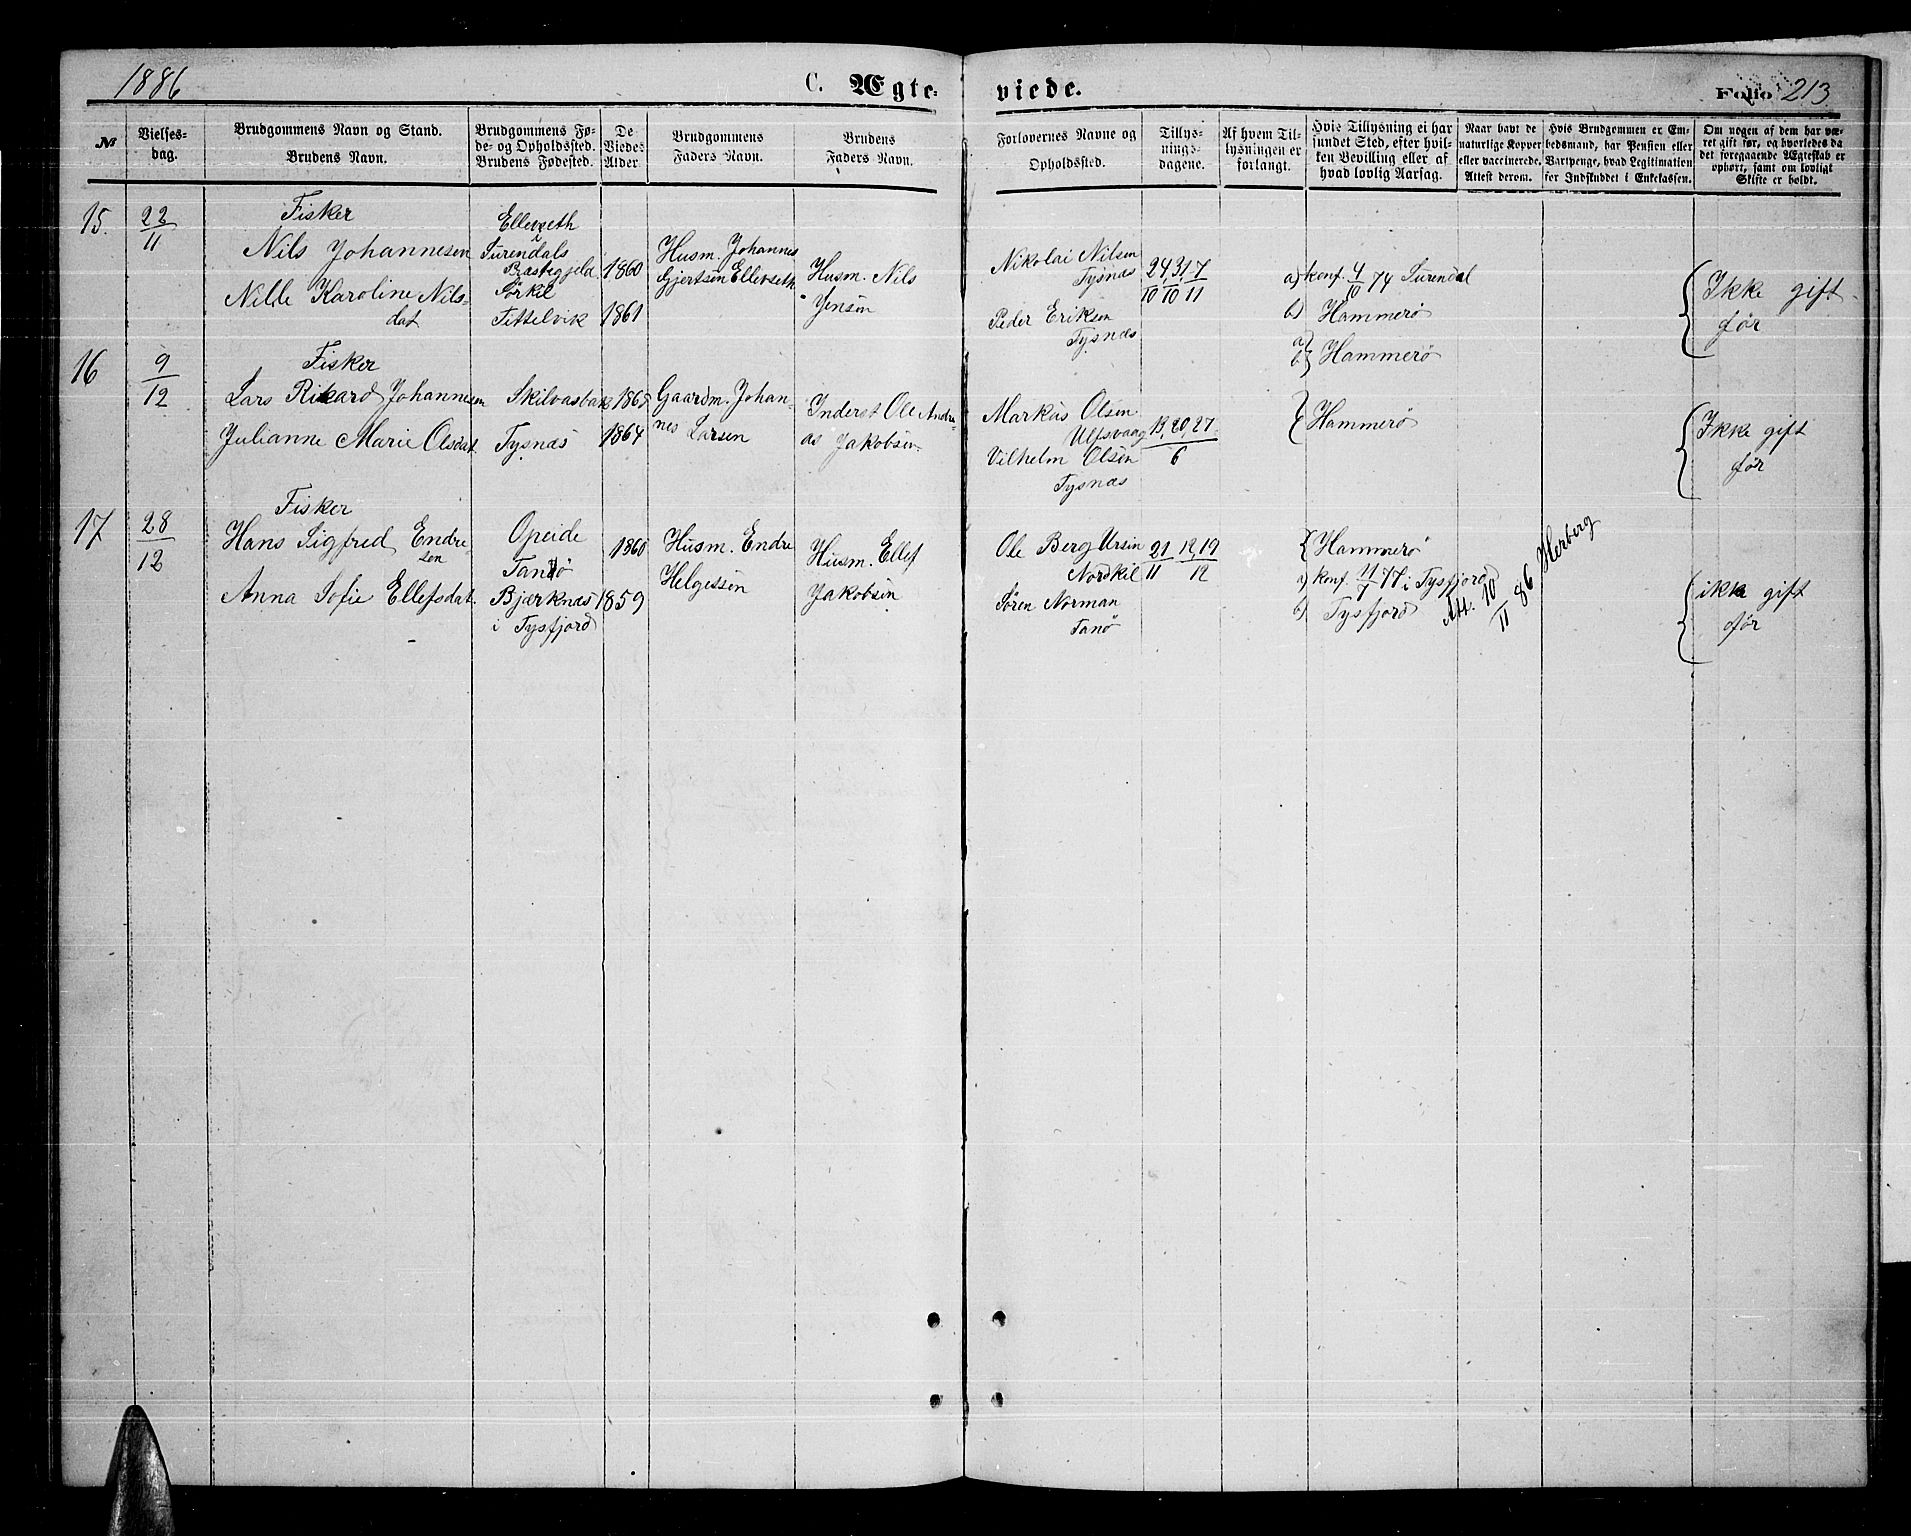 1886
C. Ægte=
viede.
Folio 213
№
Vielses=
dag.
Brudgommens Navn og Stand.
Brudens Navn.
Brudgommens Fø=
de= og Opholdssted.
Brudens Fødested.
De
Viedes
Alder.
Brudgommens
Faders Navn.
Brudens
Faders Navn.
Forlovernes Navne og
Opholdssted.
Tillys=
nings=
dagene.
Af hvem Til=
lysningen er
forlangt.
Hvis Tillysning ei har
fundet Sted, efter hvil=
ken Bevilling eller af
hvad lovlig Aarsag.
Naar havt de
naturlige Kopper
eller vaccinerede.
Attest derom.
Hvis Brudgommen er Em=
bedsmand, har Pension eller
Vartpenge, hvad Legitimation
for Indskuddet i Enkekassen.
Om nogen af dem har væ=
ret gift før, og hvorledes da
det foregaaende Ægteskab er
ophørt, samt om lovligt
Skifte er holdt.
15.
22
11
Fisker
Nils Johannesen
Nille Karoline Nils-
dat
Ellevseth
i
Surendals
Præstegjeld
Sørkil
Tettelvik
1860
1861
Husm. Johannes
Gjertsen Ellevseth
Husm. Nils
Jensen
Nikolai Nilsen
Tysnæs
Peder Eriksen
Tysnæs
24 31 7
10 10 11
a) konf. 4/10 74 Surendal
b) Hammerø
a) b) } Hammerø
{ Ikke gift
før
16
9
12
Fisker
Lars Rikard Johannesen
Julianne Marie Olsdat
Skilvasbak
Tysnæs
1865
1864
Gaardm. Johan-
nes Larsen
Inderst Ole Andre-
as Jakobsen
Markus Olsen
Ulfsvaag
Vilhelm Olsen
Tysnæs
13, 20, 27
6
{ Hammerø
{ Ikke gift
før
17
28
12
Fisker
Hans Sigfred Endre
sen
Anna Sofie Ellefsdat.
Opeide
Tanø
Bjærknæs
i Tysfjord
1860
1859
Husm. Endre
Helgessen
Husm. Ellef
Jakobsen
Ole Berg Ursin
Nordkil
Søren Norman
Tanø
21 12, 19
11 12
{ Hammerø
a) konf. 11/7 77 i Tysfjord
b) Tysfjord
Att. 10/11 86 Herberg
{ ikke gift
før